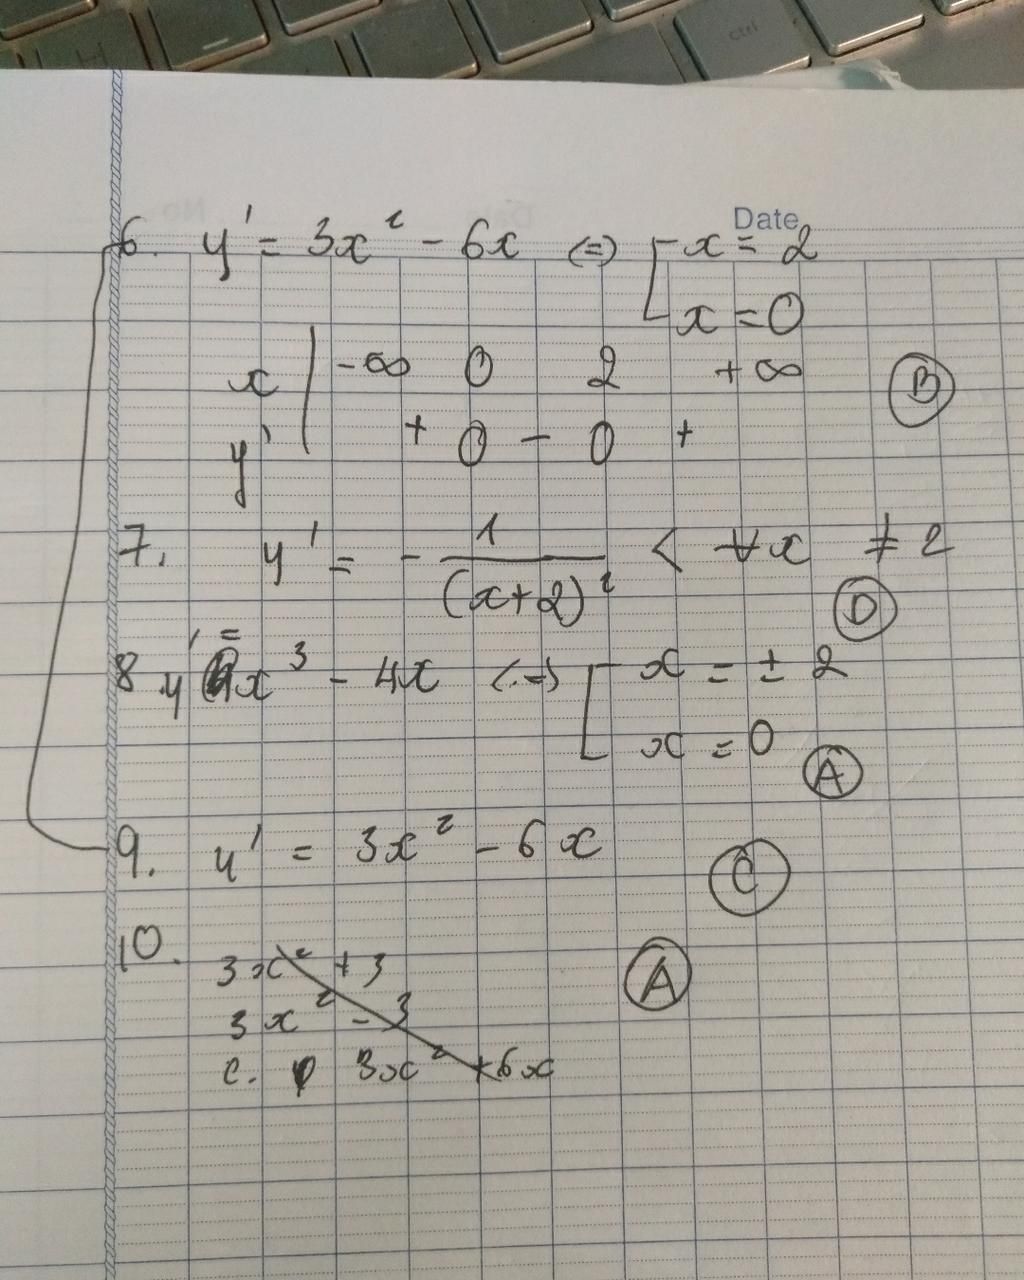 ctrl
Date
6. y' = 3x² - 6x (=) [ x = 2
x = 0
x | -∞ 0 2 +∞
B
y' | + 0 - 0 +
7. y' = - 1/(x+2)² < ∀x ≠ 2
D
8 y' = x³ - 4x (=) [ x = ± 2
x = 0
A
9. y' = 3x² - 6x
C
10.
3x² + 3
A
3x² - 3
c. 3x² + 6x